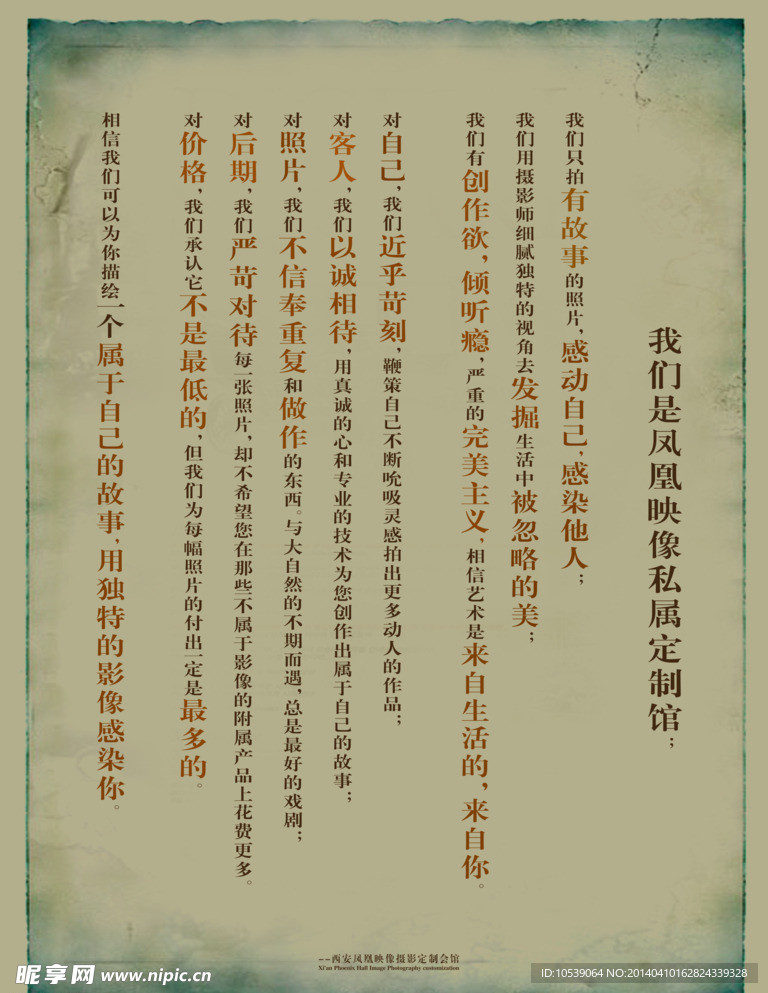 我们是凤凰映像私属定制馆；
我们只拍有故事的照片，感动自己，感染他人；
我们用摄影师细腻独特的视角去发掘生活中被忽略的美；
我们有创作欲，倾听瘾，严重的完美主义，相信艺术是来自生活的，来自你。
对自己，我们近乎苛刻，鞭策自己不断吮吸灵感拍出更多动人的作品；
对客人，我们以诚相待，用真诚的心和专业的技术为您创作出属于自己的故事；
对照片，我们不信奉重复和做作的东西。与大自然的不期而遇，总是最好的戏剧；
对后期，我们严苛对待每一张照片，却不希望您在那些不属于影像的附属产品上花费更多。
对价格，我们承认它不是最低的，但我们为每幅照片的付出一定是最多的。
相信我们可以为你描绘一个属于自己的故事，用独特的影像感染你。
--西安凤凰映像摄影定制会馆
Xi'an Phoenix Hall Image Photography customization
昵享网 www.nipic.cn
ID:10539064 NO:20140410162824339328